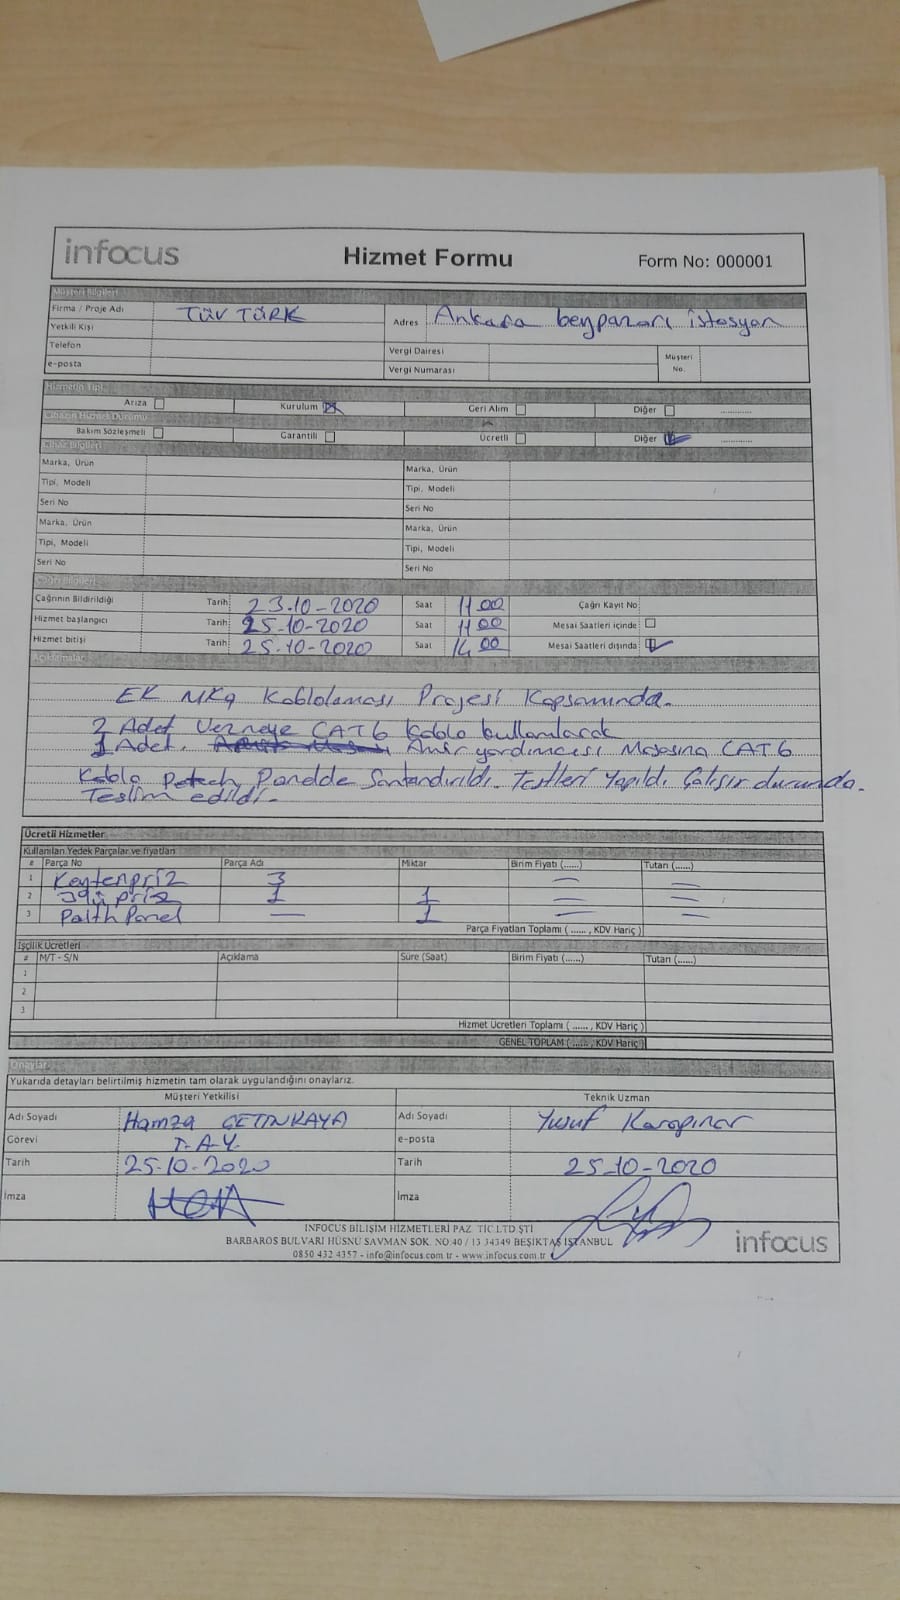 infocus Hizmet Formu Form No: 000001
Müşteri Bilgileri
Firma / Proje Adı TÜV TÜRK Adres Ankara beypazarı istasyon
Yetkili Kişi
Telefon Vergi Dairesi Müşteri No.
e-posta Vergi Numarası
Hizmetin Tipi
Arıza Kurulum Geri Alım Diğer ............
Cihazın Hizmet Durumu
Bakım Sözleşmeli Garantili Ücretli Diğer ............
Cihaz Bilgileri
Marka, Ürün Marka, Ürün
Tipi, Modeli Tipi, Modeli
Seri No Seri No
Marka, Ürün Marka, Ürün
Tipi, Modeli Tipi, Modeli
Seri No Seri No
Çağrı Bilgileri
Çağrının Bildirildiği Tarih: 23.10-2020 Saat 11 00 Çağrı Kayıt No
Hizmet başlangıcı Tarih: 25-10-2020 Saat 11 00 Mesai Saatleri içinde
Hizmet bitişi Tarih: 25.-10-2020 Saat 14 00 Mesai Saatleri dışında
Açıklamalar
EK Kablolaması Projesi Kapsamında.
2 Adet Vezneye CAT6 Kablo kullanılarak
1 Adet. Amir yardımcısı Masasına CAT6
Kablo Patech Panelde Sonlandırıldı. Testleri Yapıldı. Çalışır durumda.
Teslim edildi.
Ücretli Hizmetler
Kullanılan Yedek Parçalar ve fiyatları
# Parça No Parça Adı Miktar Birim Fiyatı (......) Tutarı (......)
1 3
2 1 1
3 Patth Panel — 1
Parça Fiyatları Toplamı ( ...... , KDV Hariç )
İşçilik Ücretleri
# M/T - S/N Açıklama Süre (Saat) Birim Fiyatı (......) Tutarı (......)
1
2
3
Hizmet Ücretleri Toplamı ( ...... , KDV Hariç )
GENEL TOPLAM ( ...... , KDV Hariç )
Onaylar
Yukarıda detayları belirtilmiş hizmetin tam olarak uygulandığını onaylarız.
Müşteri Yetkilisi Teknik Uzman
Adı Soyadı Hamza ÇETİNKAYA Adı Soyadı Yusuf Karapınar
Görevi T.A.Y. e-posta
Tarih 25-10-2020 Tarih 25-10-2020
İmza İmza
INFOCUS BİLİŞİM HİZMETLERİ PAZ. TİC.LTD ŞTİ
BARBAROS BULVARI HÜSNÜ SAVMAN SOK. NO:40 / 13 34349 BEŞİKTAŞ İSTANBUL
0850 432 4357 - info@infocus.com.tr - www.infocus.com.tr
infocus